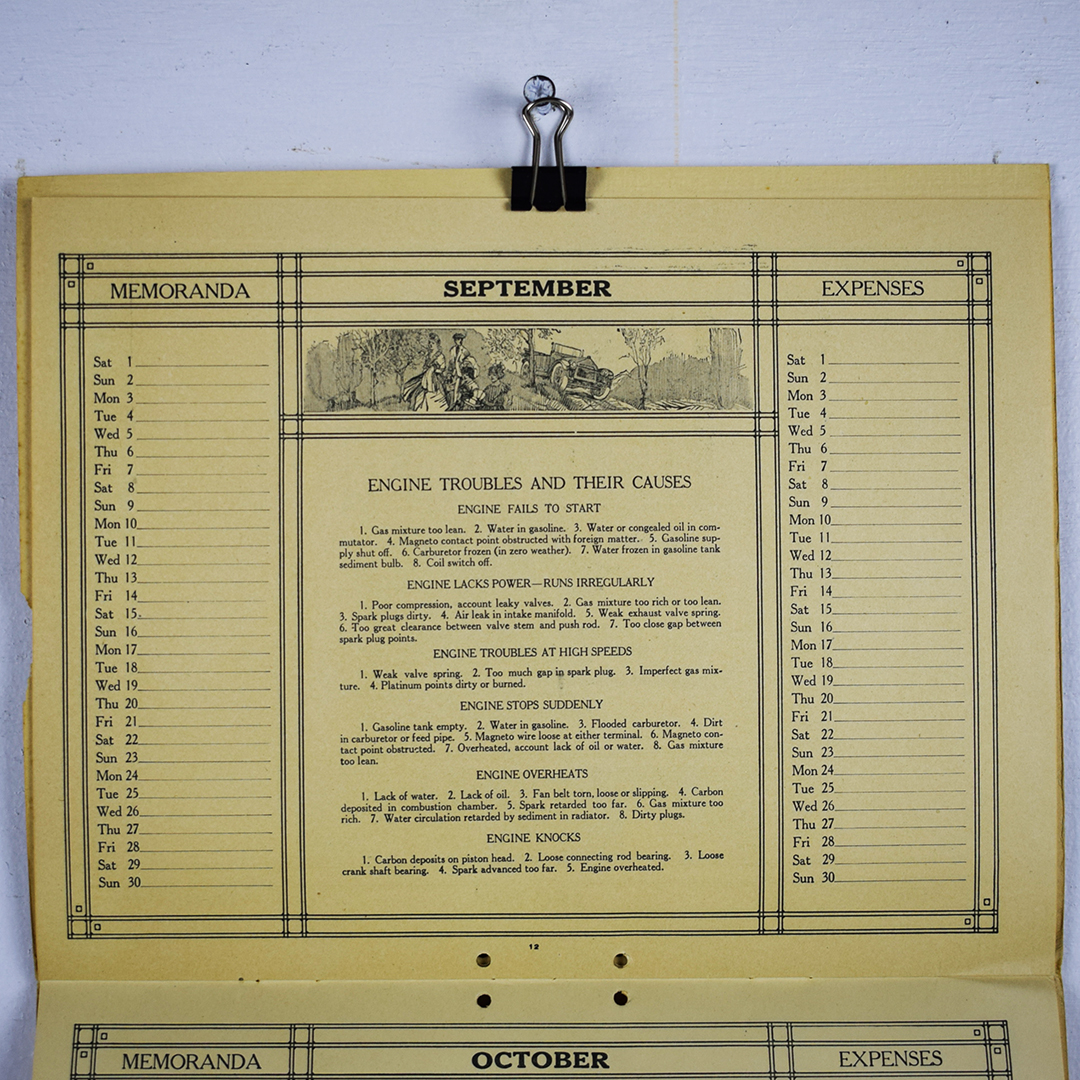 MEMORANDA
SEPTEMBER
EXPENSES
Sat 1
Sun 2
Mon 3
Tue 4
Wed 5
Thu 6
Fri 7
Sat 8
Sun 9
Mon 10
Tue 11
Wed 12
Thu 13
Fri 14
Sat 15
Sun 16
Mon 17
Tue 18
Wed 19
Thu 20
Fri 21
Sat 22
Sun 23
Mon 24
Tue 25
Wed 26
Thu 27
Fri 28
Sat 29
Sun 30
ENGINE TROUBLES AND THEIR CAUSES
ENGINE FAILS TO START
1. Gas mixture too lean. 2. Water in gasoline. 3. Water or congealed oil in com-
mutator. 4. Magneto contact point obstructed with foreign matter. 5. Gasoline sup-
ply shut off. 6. Carburetor frozen (in zero weather). 7. Water frozen in gasoline tank
sediment bulb. 8. Coil switch off.
ENGINE LACKS POWER—RUNS IRREGULARLY
1. Poor compression, account leaky valves. 2. Gas mixture too rich or too lean.
3. Spark plugs dirty. 4. Air leak in intake manifold. 5. Weak exhaust valve spring.
6. Too great clearance between valve stem and push rod. 7. Too close gap between
spark plug points.
ENGINE TROUBLES AT HIGH SPEEDS
1. Weak valve spring. 2. Too much gap in spark plug. 3. Imperfect gas mix-
ture. 4. Platinum points dirty or burned.
ENGINE STOPS SUDDENLY
1. Gasoline tank empty. 2. Water in gasoline. 3. Flooded carburetor. 4. Dirt
in carburetor or feed pipe. 5. Magneto wire loose at either terminal. 6. Magneto con-
tact point obstructed. 7. Overheated, account lack of oil or water. 8. Gas mixture
too lean.
ENGINE OVERHEATS
1. Lack of water. 2. Lack of oil. 3. Fan belt torn, loose or slipping. 4. Carbon
deposited in combustion chamber. 5. Spark retarded too far. 6. Gas mixture too
rich. 7. Water circulation retarded by sediment in radiator. 8. Dirty plugs.
ENGINE KNOCKS
1. Carbon deposits on piston head. 2. Loose connecting rod bearing. 3. Loose
crank shaft bearing. 4. Spark advanced too far. 5. Engine overheated.
Sat 1
Sun 2
Mon 3
Tue 4
Wed 5
Thu 6
Fri 7
Sat 8
Sun 9
Mon 10
Tue 11
Wed 12
Thu 13
Fri 14
Sat 15
Sun 16
Mon 17
Tue 18
Wed 19
Thu 20
Fri 21
Sat 22
Sun 23
Mon 24
Tue 25
Wed 26
Thu 27
Fri 28
Sat 29
Sun 30
12
MEMORANDA
OCTOBER
EXPENSES